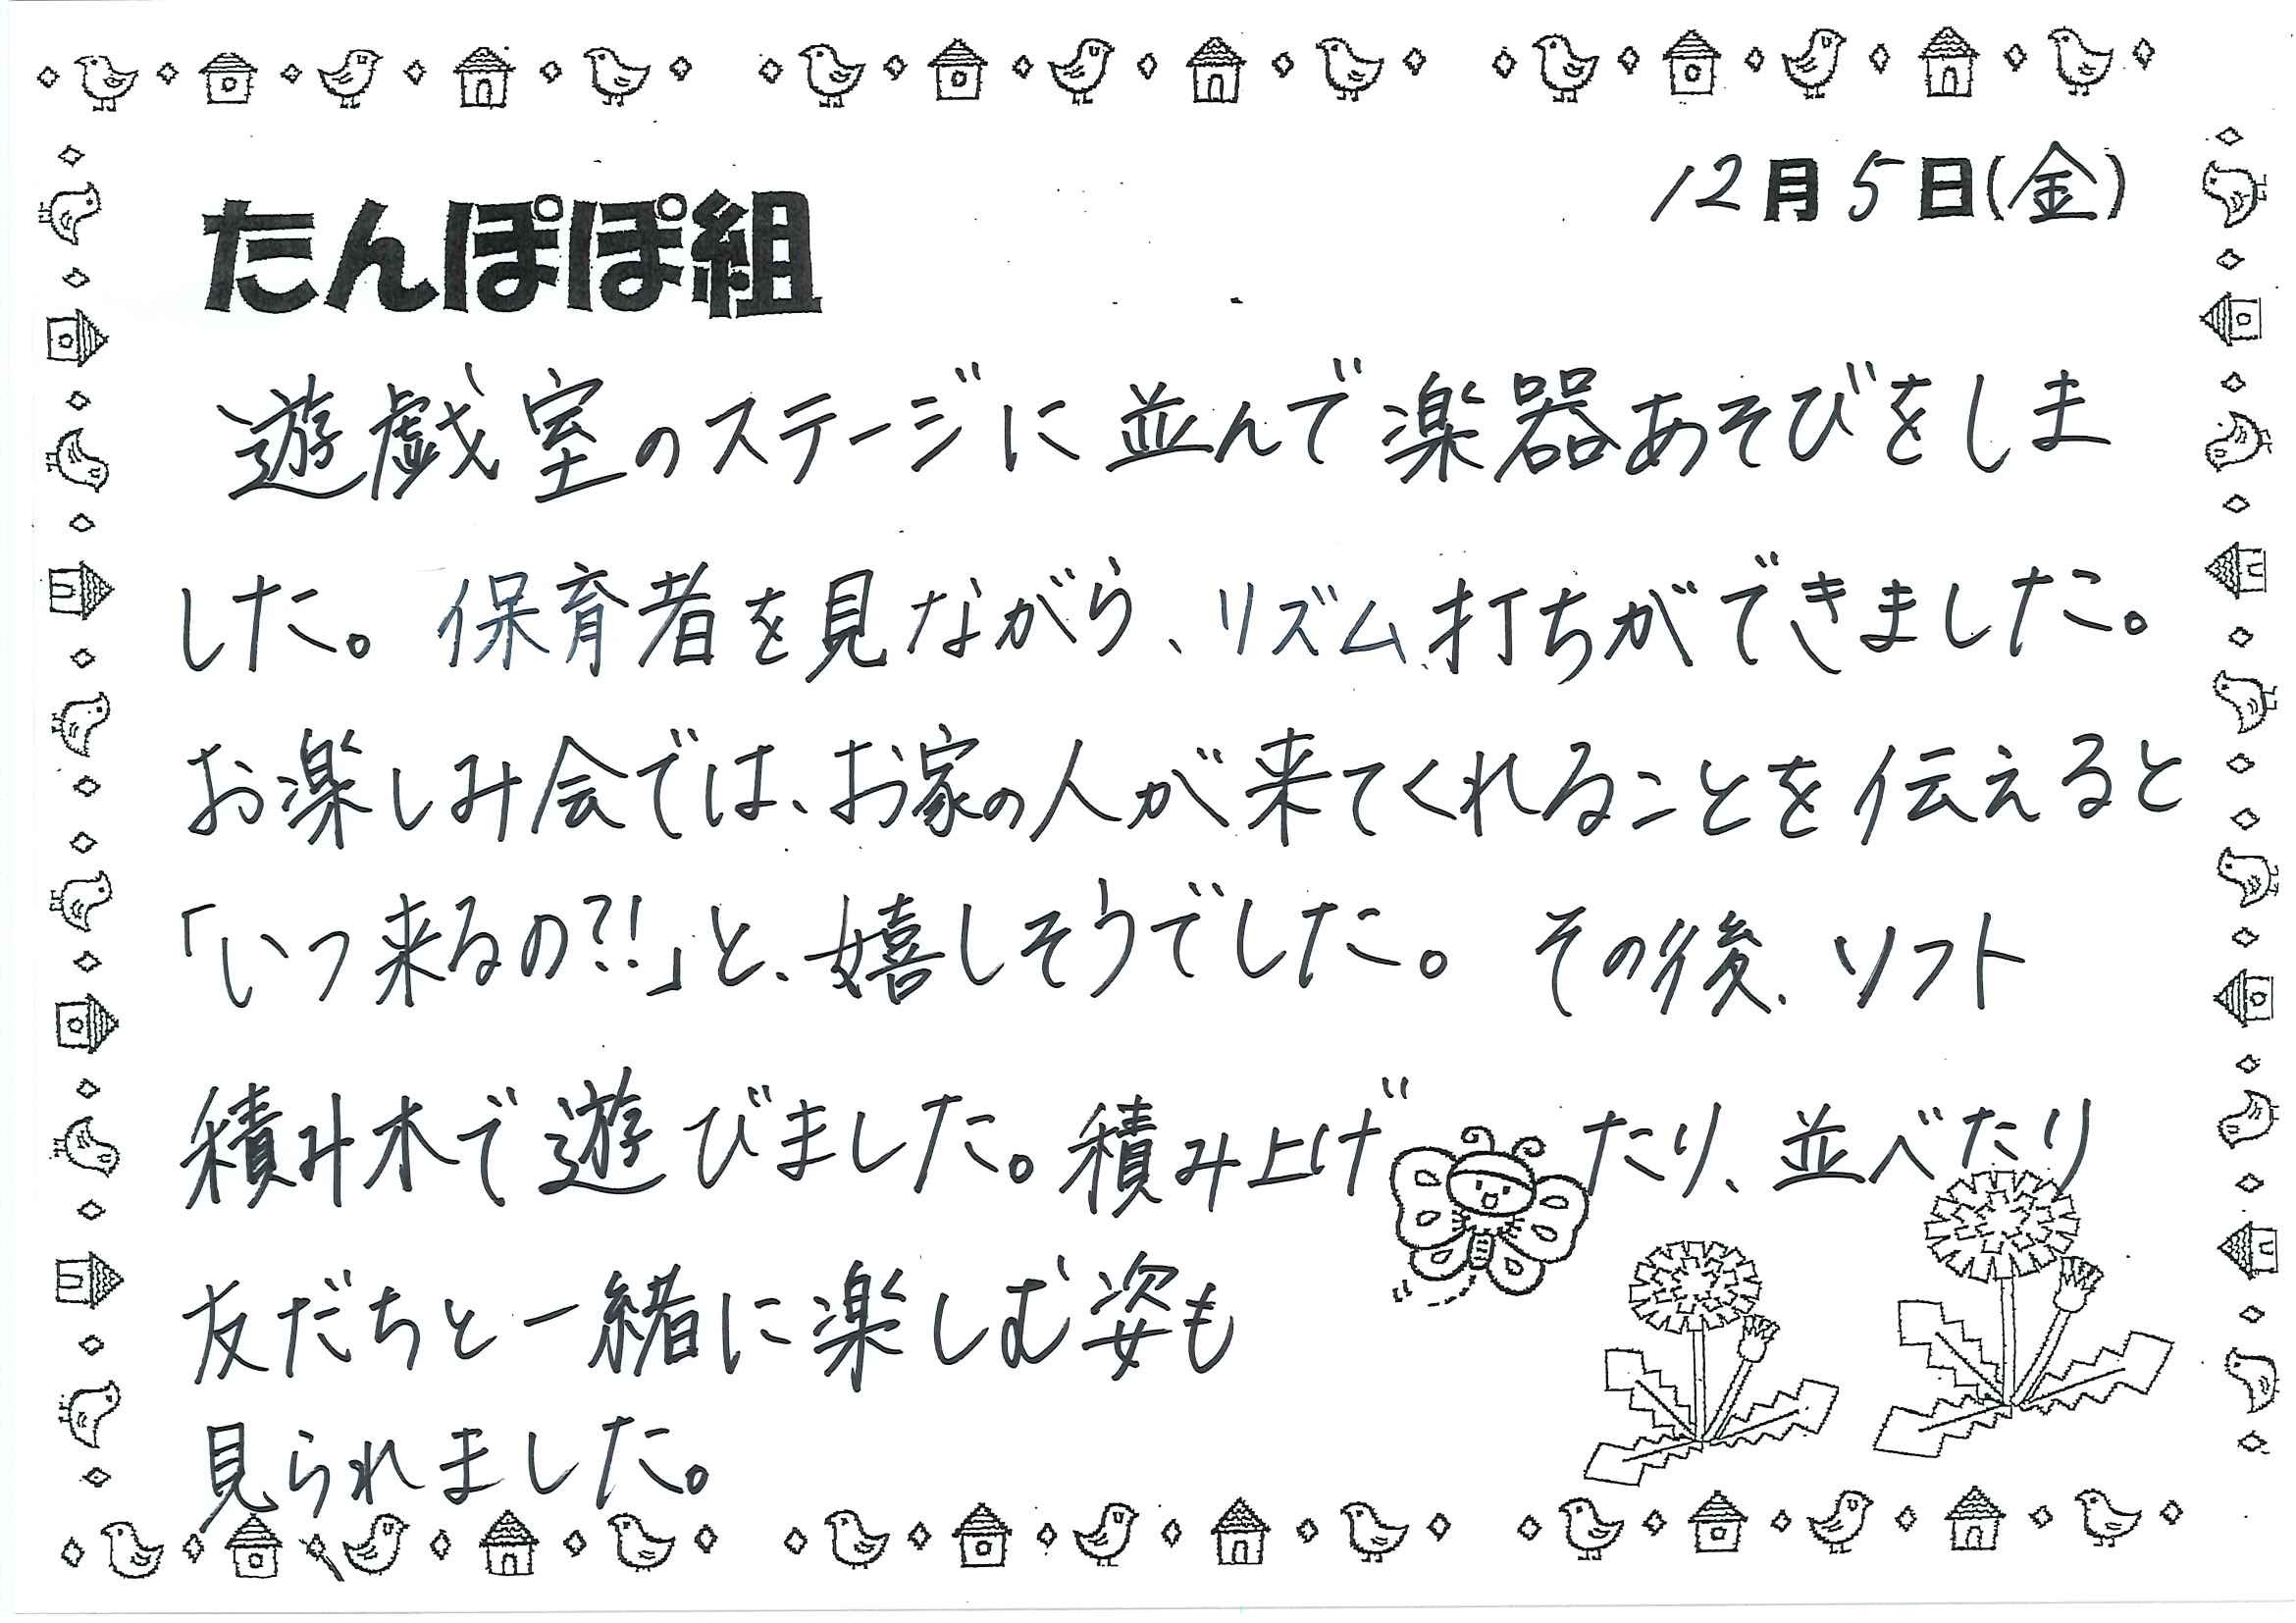 12月5日(金)
たんぽぽ組
遊戯室のステージに並んで楽器あそびをしま
した。保育者を見ながら、リズム打ちができました。
お楽しみ会では、お家の人が来てくれることを伝えると
「いつ来るの?!」と、嬉しそうでした。その後、ソフト
積み木で遊びました。積み上げたり、並べたり
友だちと一緒に楽しむ姿も
見られました。